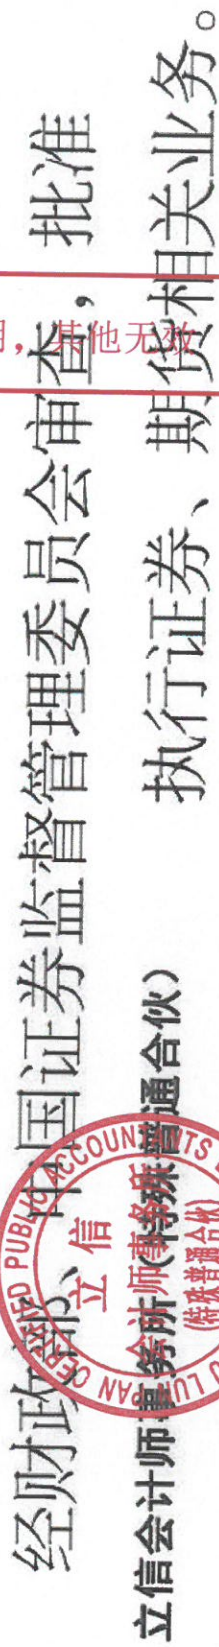 经财政部、中国证券监督管理委员会审查，批准
立信会计师事务所（特殊普通合伙） 执行证券、期货相关业务。
，其他无效
CERTIFIED PUBLIC ACCOUNTANTS
立信
会计师事务所
(特殊普通合伙)